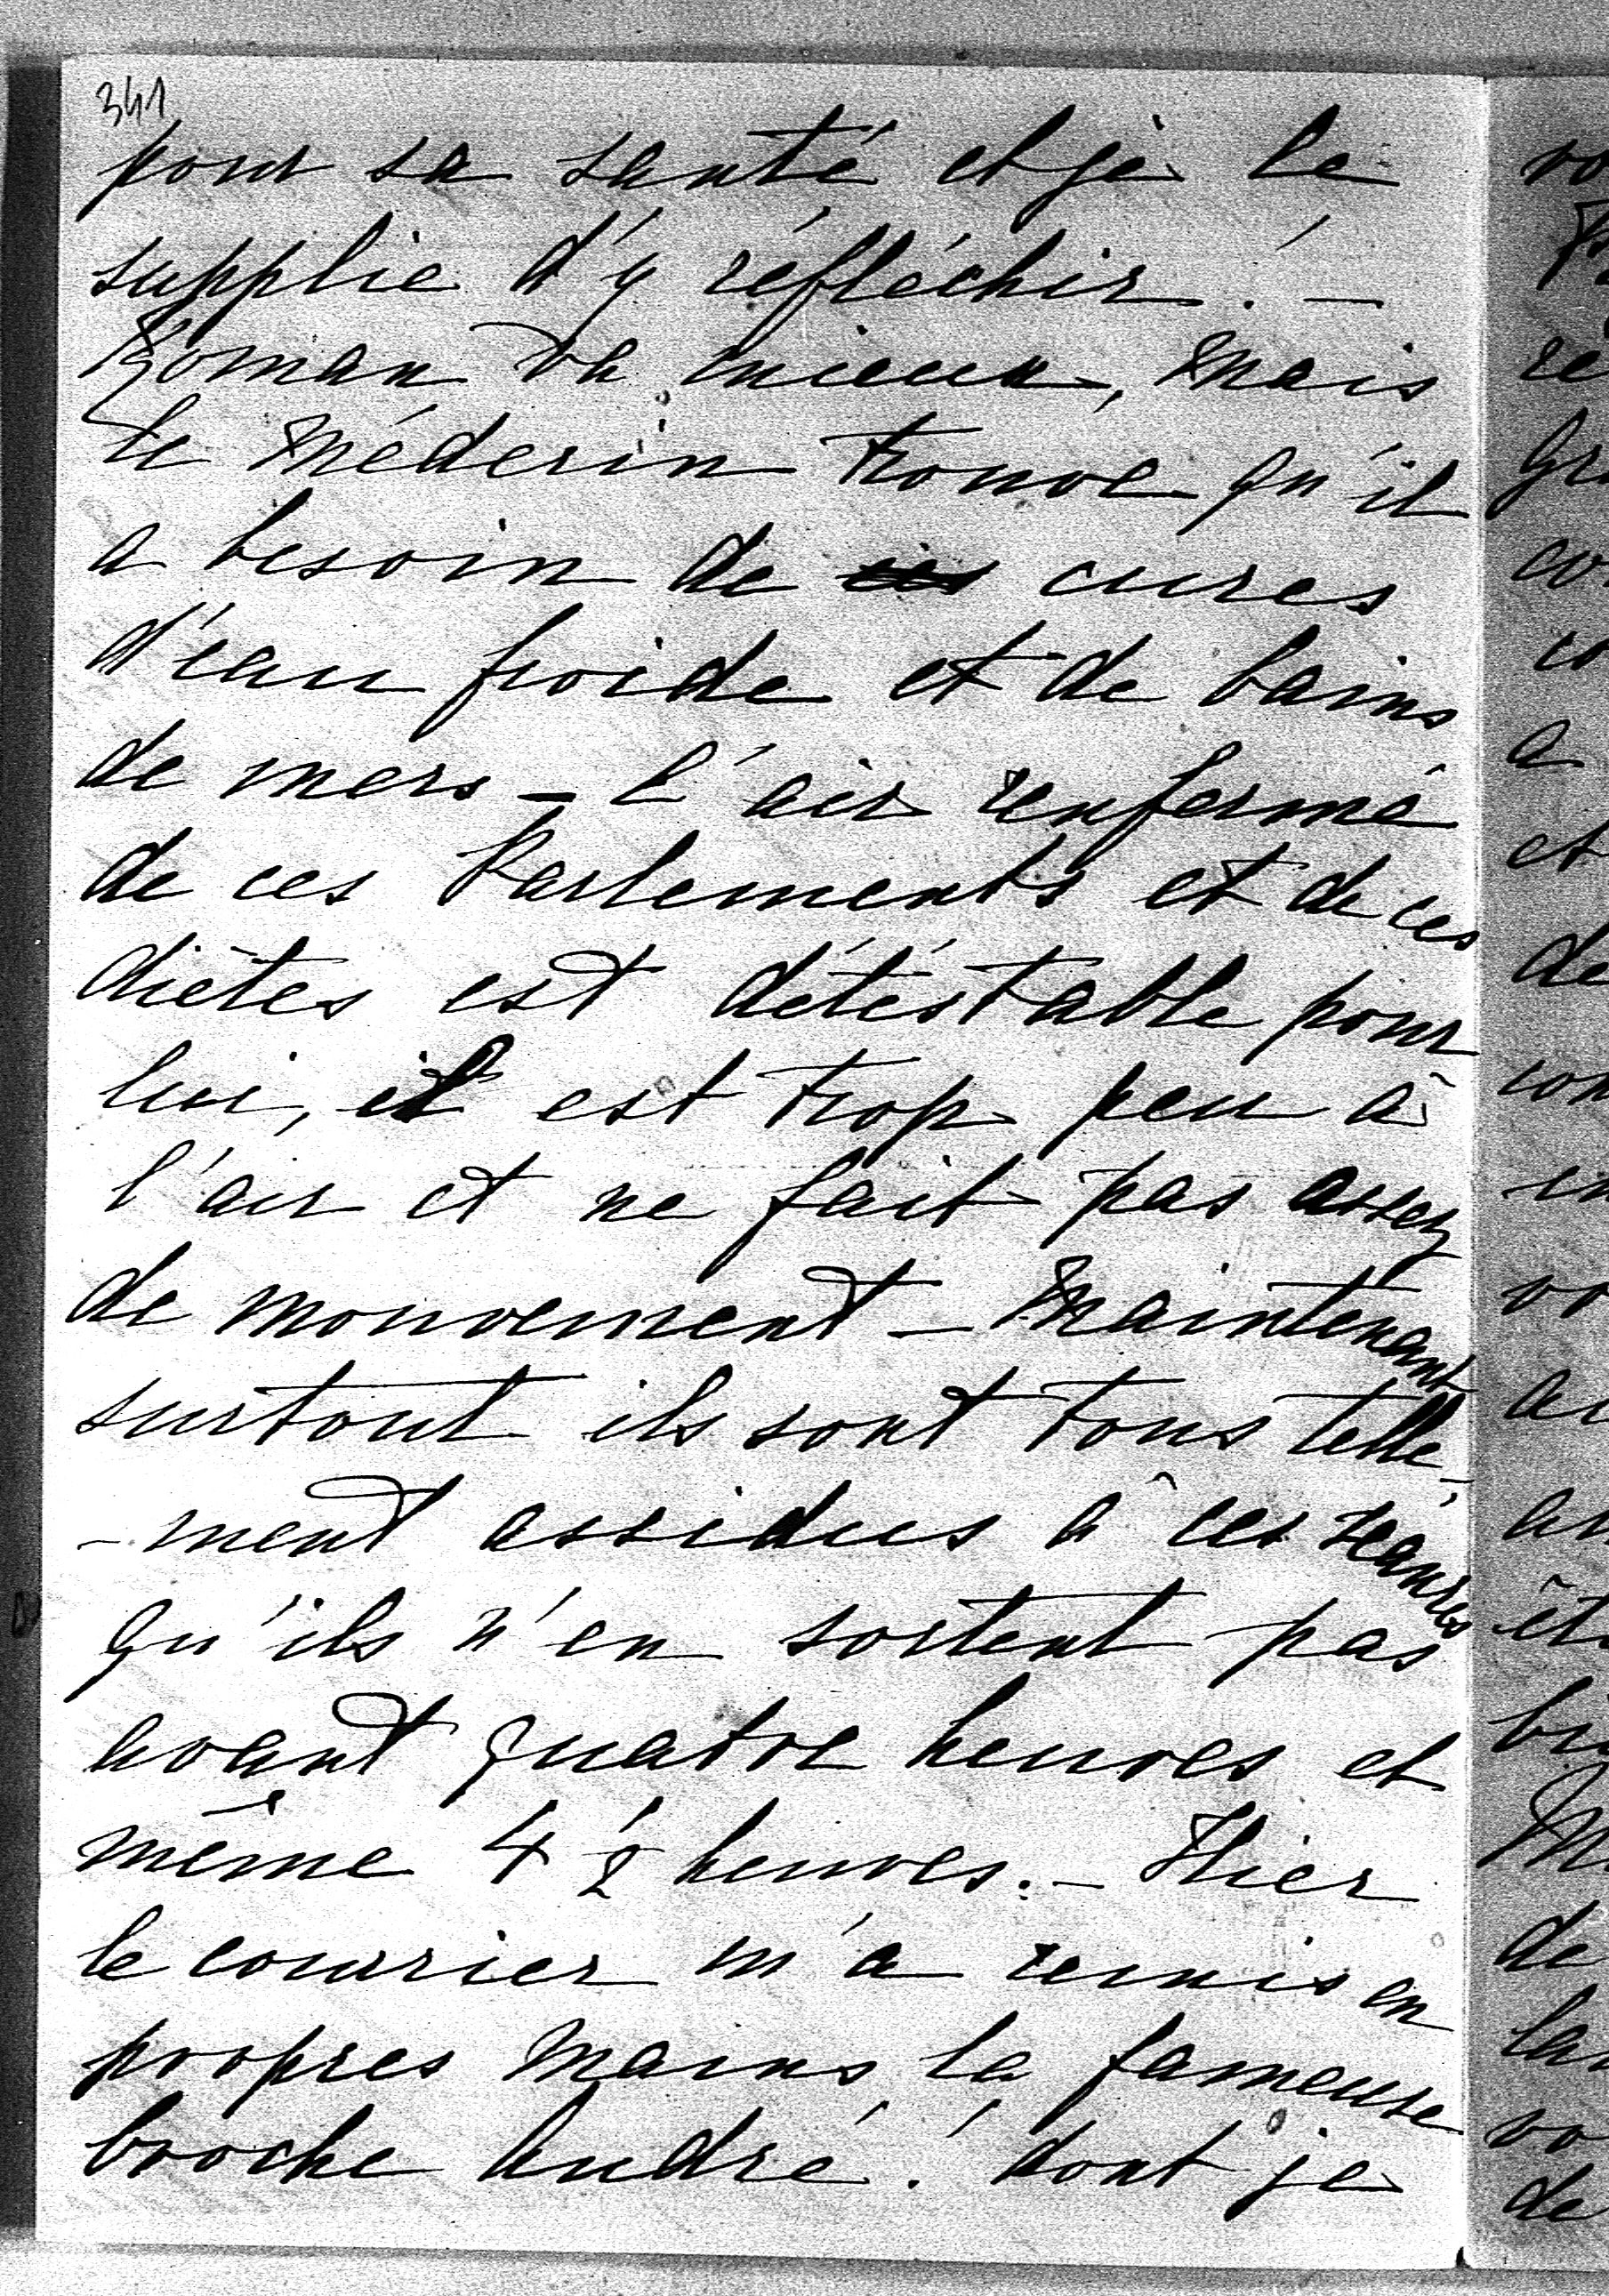 341
pour sa santé et je le
supplie d'y réfléchir. —
Roman va mieux, mais
le médecin trouve qu'il
a besoin de cures
d'eau froide et de bains
de mers — l'air renfermé
de ces Parlements et de ces
diètes est détéstable pour
lui, il est trop peu à
l'air et ne fait pas assez
de mouvement — Maintenant
surtout ils sont tous telle-
-ment assidus à ces séances
qu'ils n'en sortent pas
avant quatre heures et
même 4 ½ heures. — Hier
le courrier m'a remis en
propres mains la fameuse
broche André! dont je